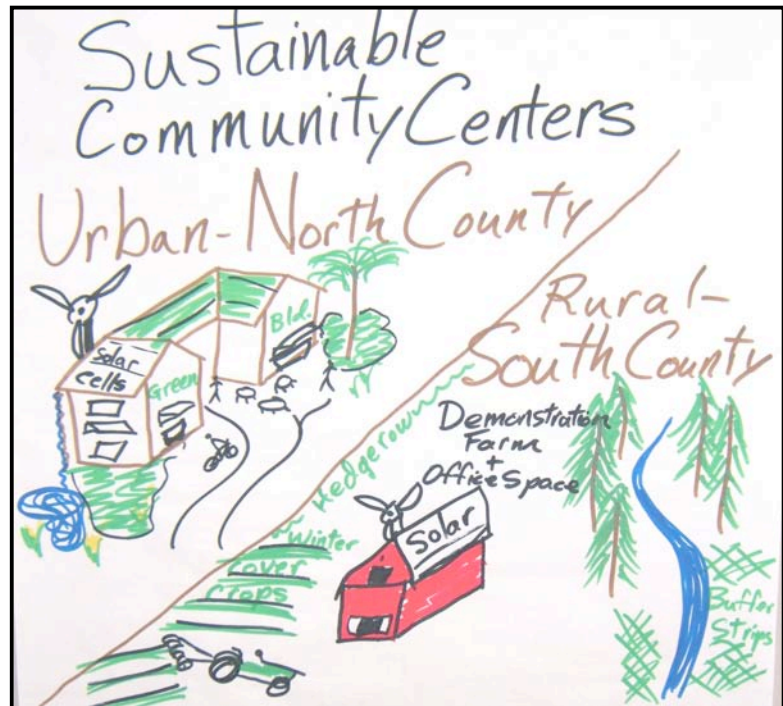 Sustainable
Community Centers
Urban-North County
Rural-
South County
Bld.
Solar
cells
Green
Hedgerow
Demonstration
Farm
+
Office Space
Winter
cover
crops
Solar
Buffer
Strips